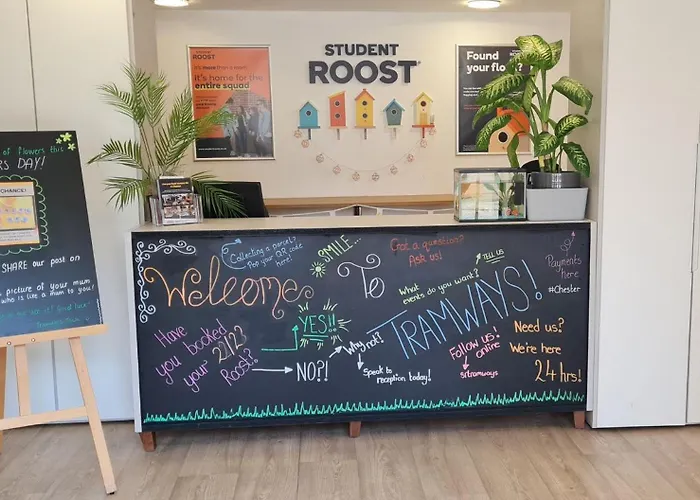 STUDENT
ROOST
STUDENT
ROOST
It's home for the
entire squad
Found
your flo
of flowers for this
RS DAY!
CHANCE!
SHARE our post
on
picture of your mum
who is like a mum to you!
Collecting a parcel?
Pop your QR code
here!
SMILE...
Got a question?
Ask us!
What
events do you want?
TELL US
Payments
here
#Chester
Welcome
To
TRAMWAYS!
Have
you booked
your 22/23
Roost?
YES!!
NO?!
Why
not?
Speak to
reception today!
Follow us!
online
srtramways
Need us?
We're here
24 hrs!